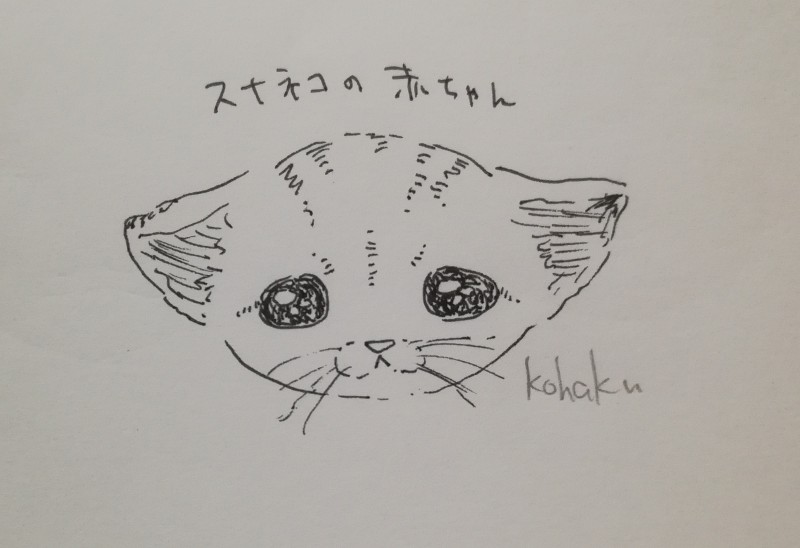 スナネコの赤ちゃん
kohaku